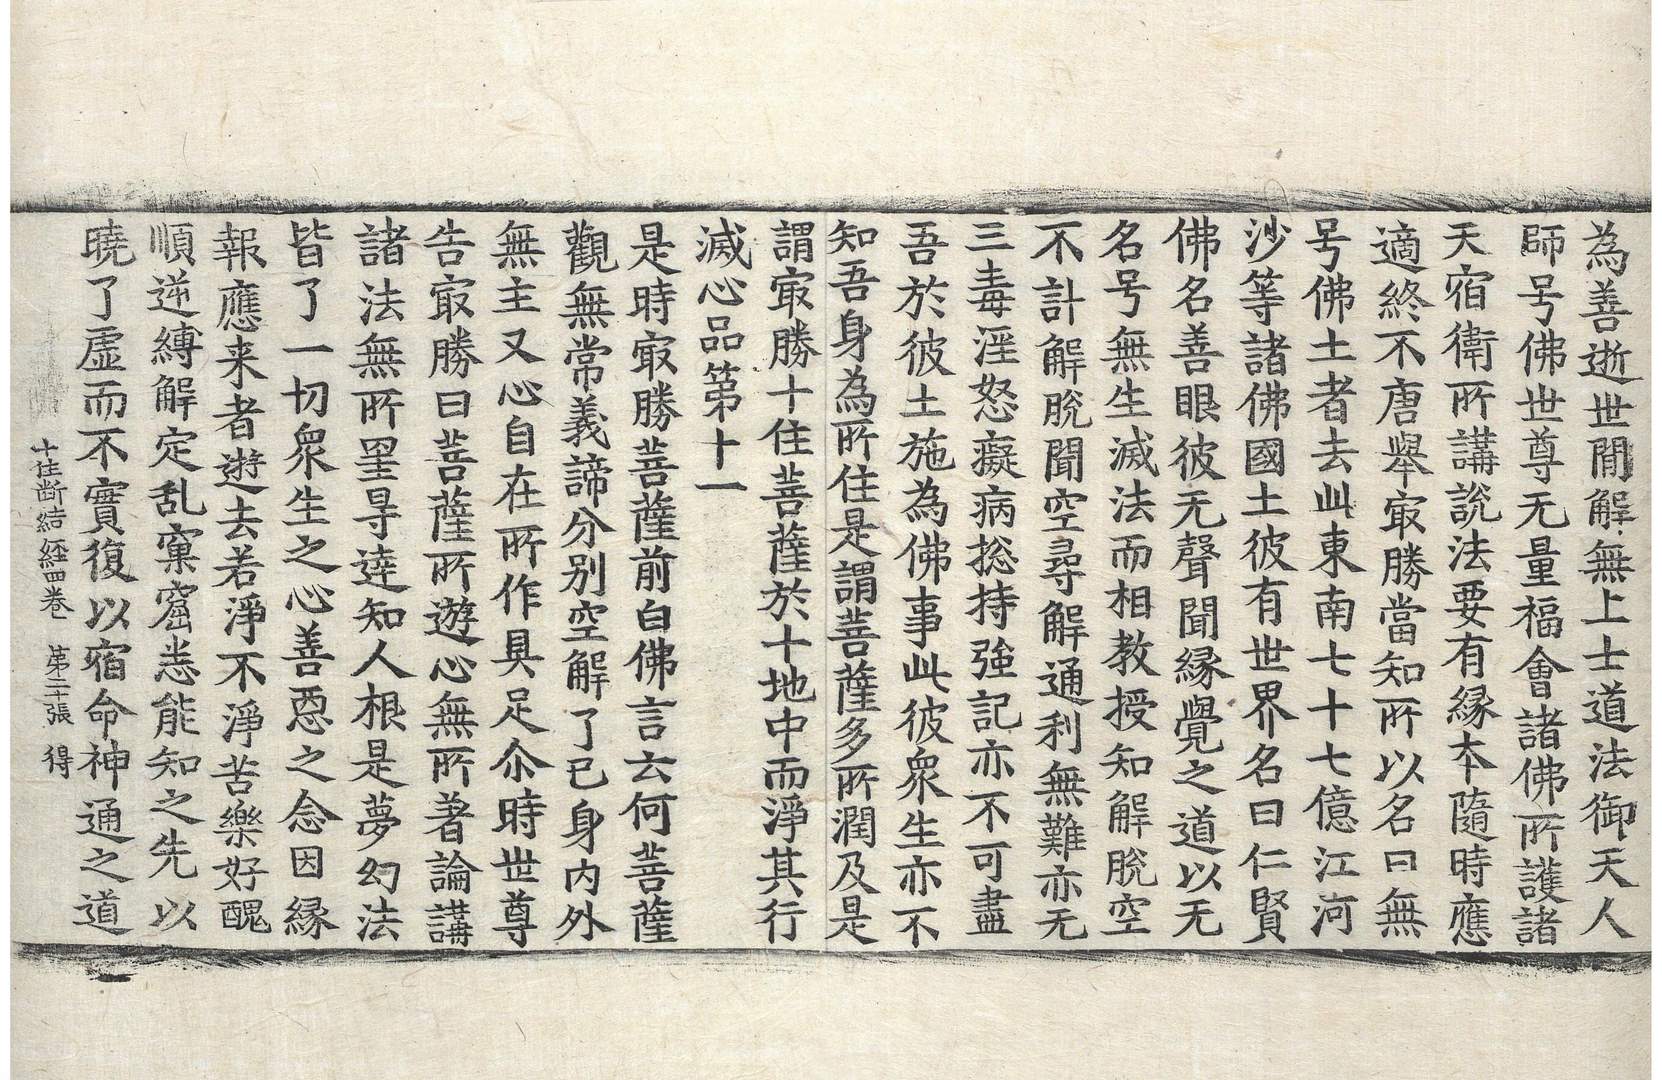 為善逝世閒解無上士道法御天人
師号佛世尊无量福會諸佛所護諸
天宿衛所講說法要有縁本隨時應
適終不唐舉㝡勝當知所以名曰無
号佛土者去此東南七十七億江河
沙等諸佛國土彼有世界名曰仁賢
佛名善眼彼无聲聞縁覺之道以无
名号無生滅法而相教授知解脫空
不計解脫聞空尋解通利無難亦无
三毒婬怒癡病捴持強記亦不可盡
吾於彼土施為佛事此彼衆生亦不
知吾身為所住是謂菩薩多所潤及是
謂㝡勝十住菩薩於十地中而淨其行
滅心品第十一
是時㝡勝菩薩前白佛言云何菩薩
觀無常義諦分別空解了己身內外
無主又心自在所作具足尒時世尊
告㝡勝曰菩薩所遊心無所著論講
諸法無所罣㝵達知人根是夢幻法
皆了一切衆生之心善惡之念因縁
報應来者遊去若淨不淨苦樂好醜
順逆縛解定乱窠窟悉能知之先以
曉了虛而不實復以宿命神通之道
十住断結経四卷 第二十張 得